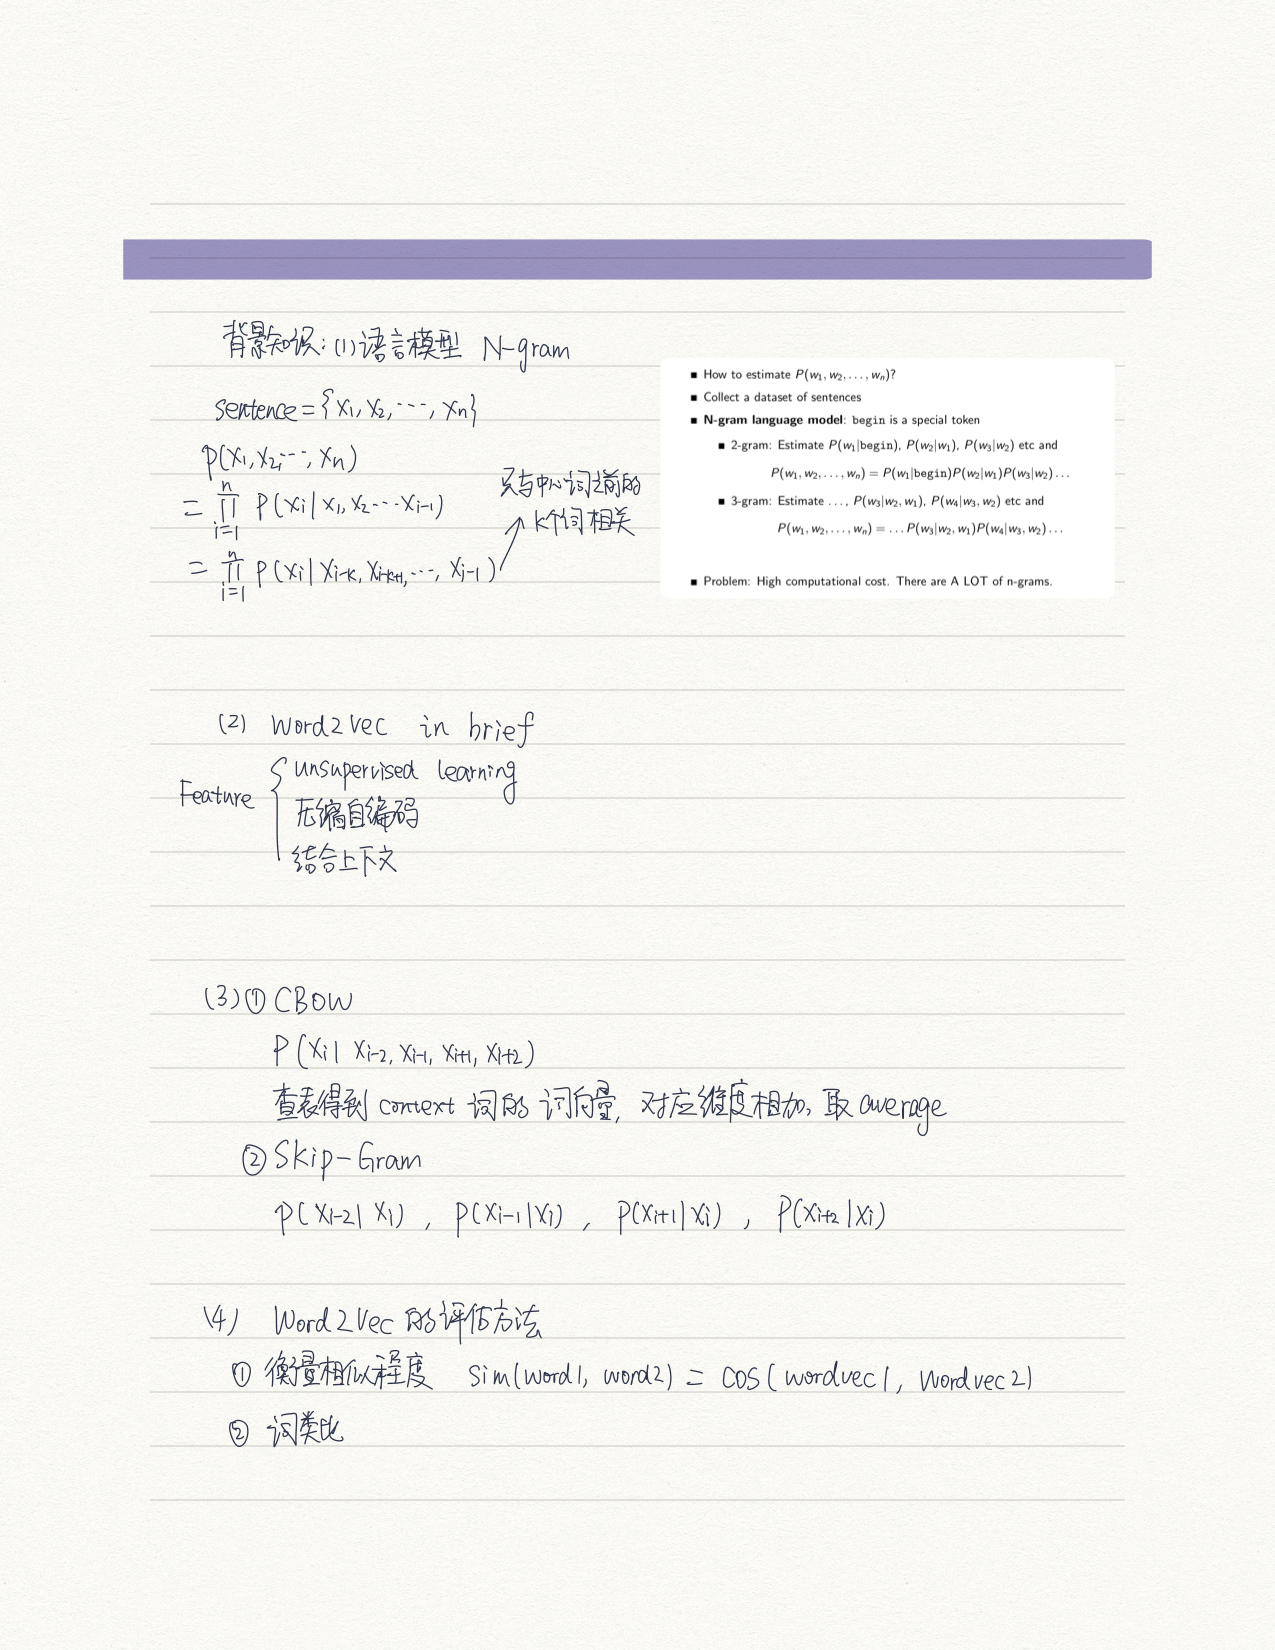 背景知识：(1)语言模型 N-gram
sentence = {x₁, x₂, ···, xₙ}
P(x₁, x₂, ···, xₙ)
= ∏ᵢ₌₁ⁿ P(xᵢ | x₁, x₂ ··· xᵢ₋₁)
= ∏ᵢ₌₁ⁿ P(xᵢ | xᵢ₋ₖ, xᵢ₋ₖ₊₁, ···, xᵢ₋₁)
只与中心词之前的
k个词相关
■ How to estimate P(w₁, w₂, . . . , wₙ)?
■ Collect a dataset of sentences
■ N-gram language model: begin is a special token
■ 2-gram: Estimate P(w₁|begin), P(w₂|w₁), P(w₃|w₂) etc and
P(w₁, w₂, . . . , wₙ) = P(w₁|begin)P(w₂|w₁)P(w₃|w₂) . . .
■ 3-gram: Estimate . . . , P(w₃|w₂, w₁), P(w₄|w₃, w₂) etc and
P(w₁, w₂, . . . , wₙ) = . . . P(w₃|w₂, w₁)P(w₄|w₃, w₂) . . .
■ Problem: High computational cost. There are A LOT of n-grams.
(2) Word2Vec in brief
Feature { unsupervised learning
压缩自编码
结合上下文
(3) ① CBOW
P(xᵢ | xᵢ₋₂, xᵢ₋₁, xᵢ₊₁, xᵢ₊₂)
查表得到 context 词的 词向量, 对应维度相加, 取 average
② Skip-Gram
P(xᵢ₋₂ | xᵢ) , P(xᵢ₋₁ | xᵢ) , P(xᵢ₊₁ | xᵢ) , P(xᵢ₊₂ | xᵢ)
(4) Word2Vec 的评估方法
① 衡量相似程度 Sim(word1, word2) = cos(wordvec1, wordvec2)
② 词类比